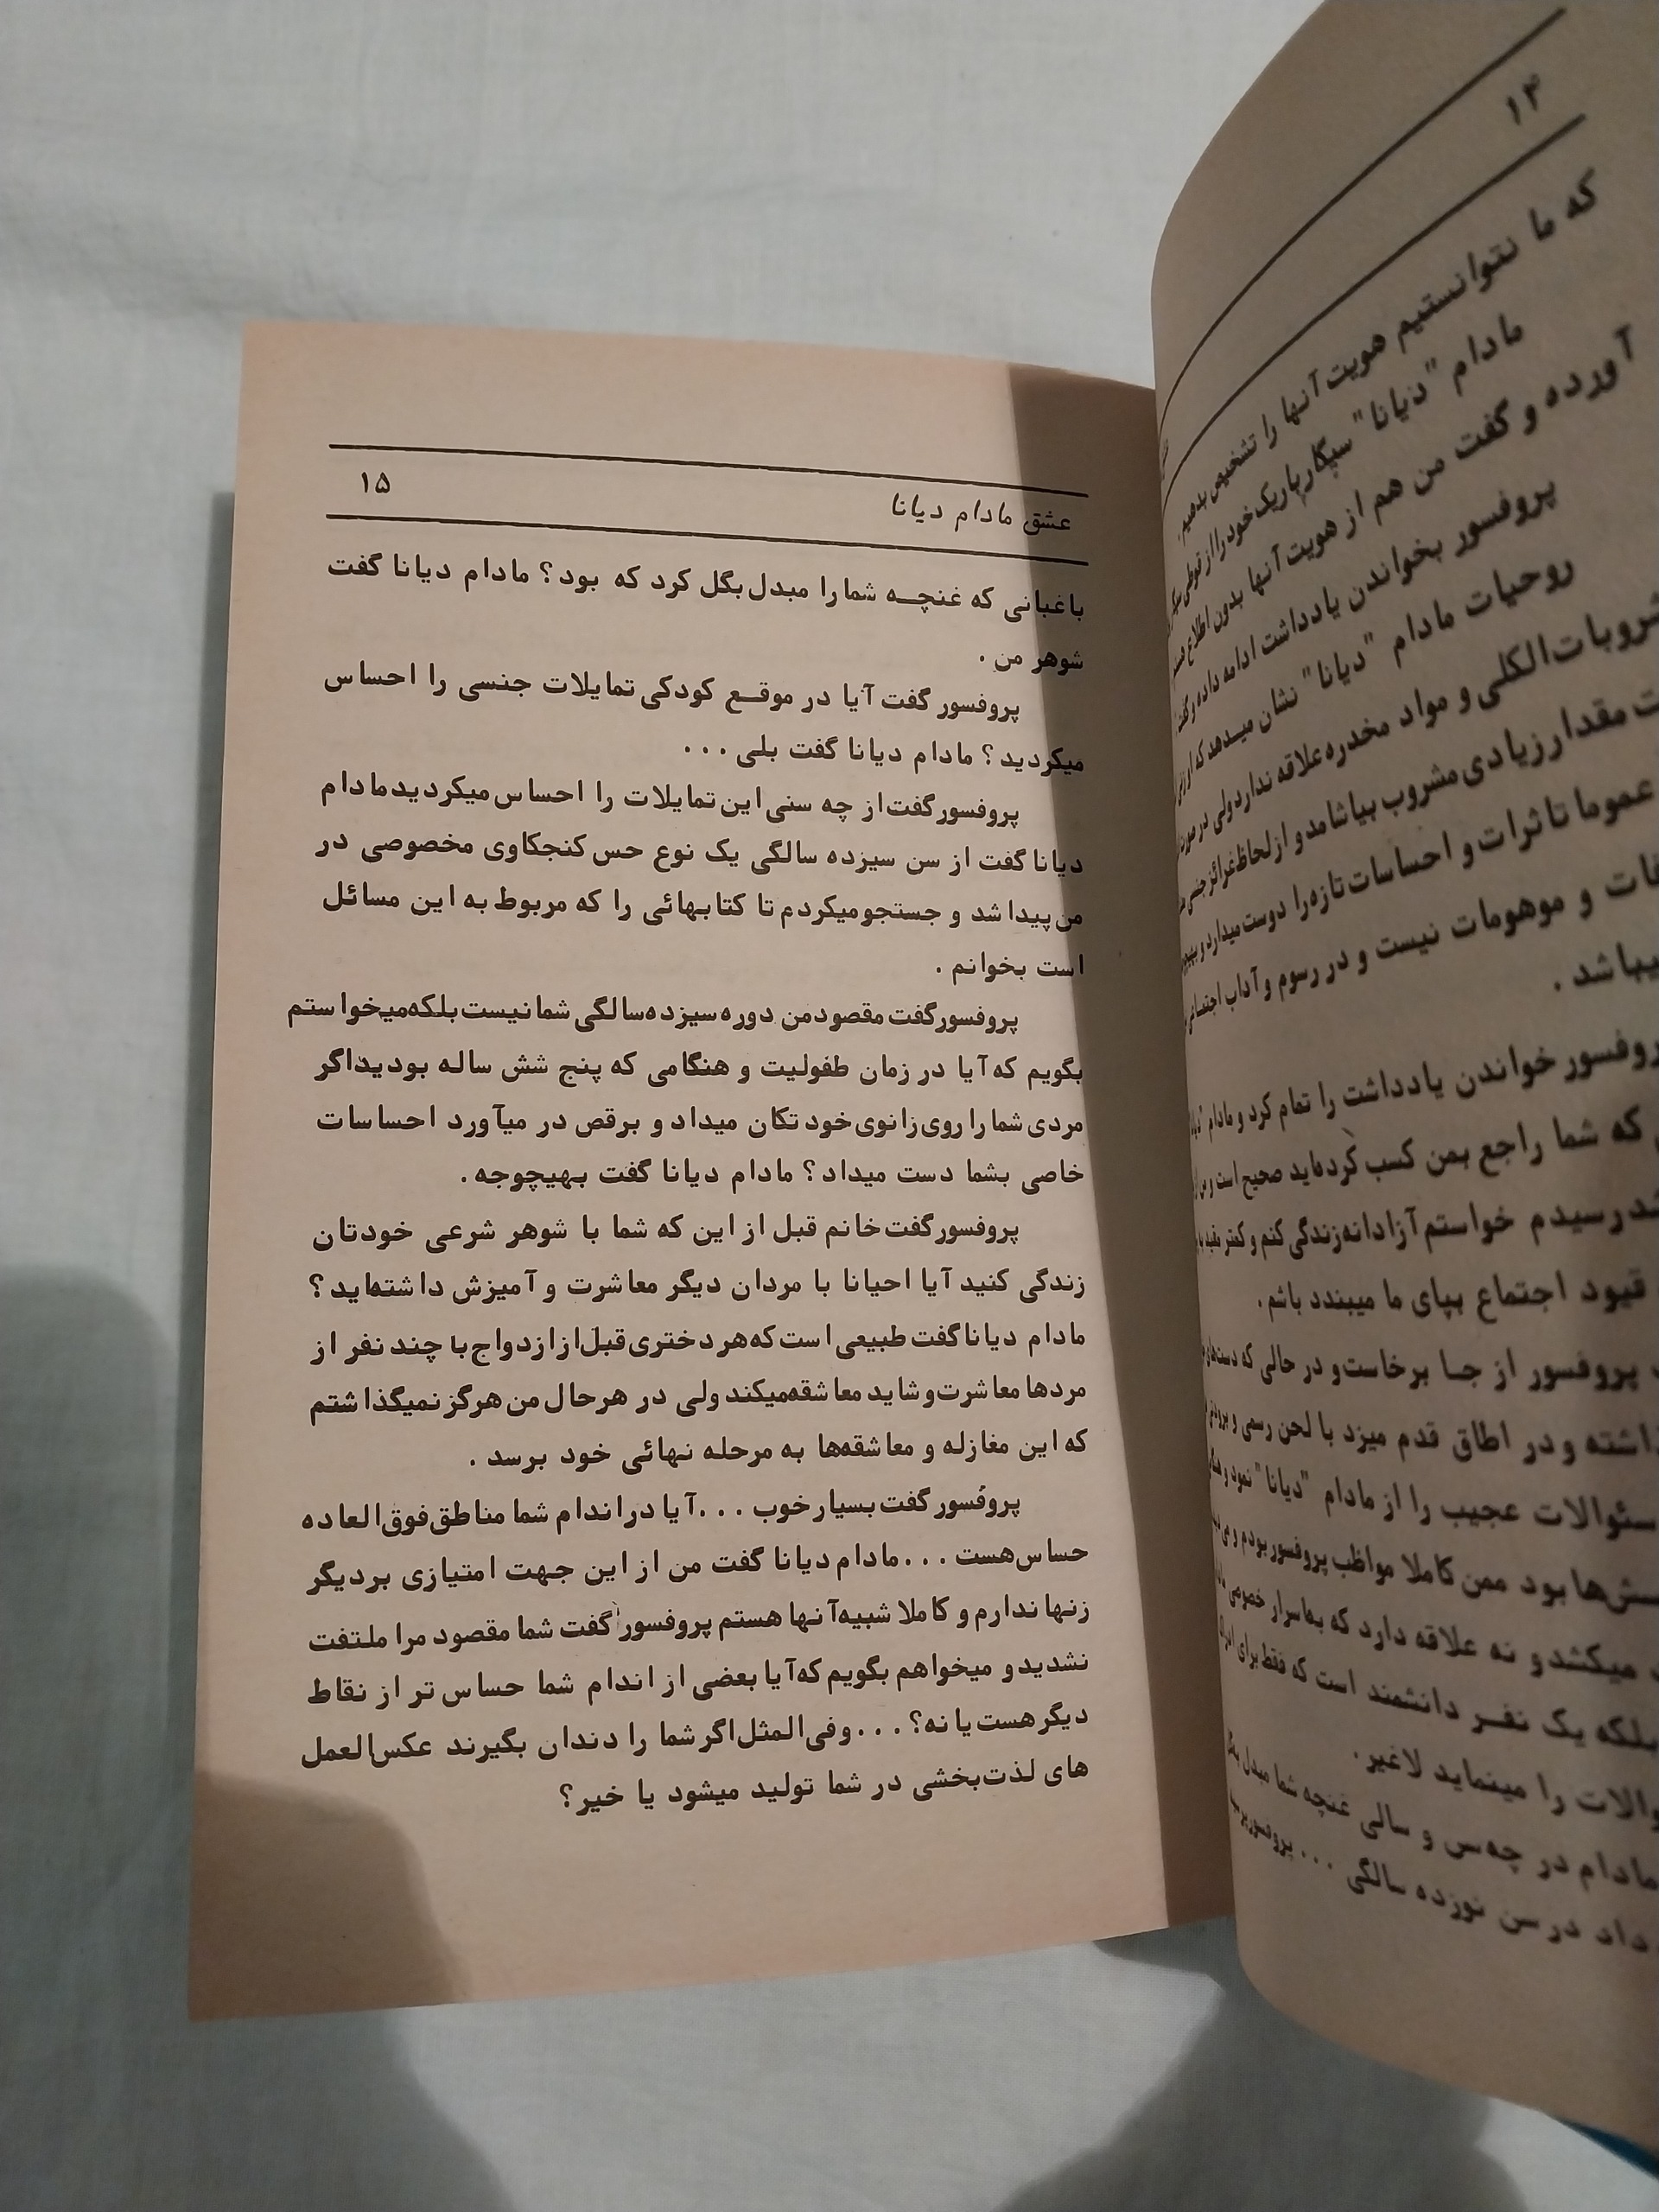 ۱۴
که ما نتوانستیم هویت آنها را تشخیص بدهیم.
مادام "دیانا" سیگار باریک خود را از قوطی
آورده و گفت من هم از هویت آنها بدون اطلاع
پروفسور بخواندن یادداشت ادامه داده و گفت
روحیات مادام "دیانا" نشان میدهد که او
مشروبات الکلی و مواد مخدره علاقه ندارد ولی در
مقدار زیادی مشروب بیاشامد و از لحاظ غرائز جنسی
عموما تاثرات و احساسات تازه را دوست میدارد و
و موهومات نیست و در رسوم و آداب اجتماعی
میباشد .
پروفسور خواندن یادداشت را تمام کرد و مادام
که شما راجع بمن کسب کرده‌اید صحیح است و من
رسیدم خواستم آزادانه زندگی کنم و کمتر مقید
قیود اجتماع بپای ما میبندد باشم .
پروفسور از جا برخاست و در حالی که دست‌های
و در اطاق قدم میزد با لحن رسمی و
سئوالات عجیب را از مادام "دیانا" نمود و
بود ممن کاملا مواظب پروفسور بودم و
میکشد و نه علاقه دارد که باسرار خصوصی
بلکه یک نفر دانشمند است که فقط برای
را مینماید لاغیر.
مادام در چه سن و سالی غنچه شما مبدل
داد در سن نوزده سالگی ... پروفسور
عشق مادام دیانا
۱۵
باغبانی که غنچه شما را مبدل بگل کرد که بود ؟ مادام دیانا گفت
شوهر من .
پروفسور گفت آیا در موقع کودکی تمایلات جنسی را احساس
میکردید ؟ مادام دیانا گفت بلی ...
پروفسور گفت از چه سنی این تمایلات را احساس میکردید مادام
دیانا گفت از سن سیزده سالگی یک نوع حس کنجکاوی مخصوصی در
من پیدا شد و جستجو میکردم تا کتابهائی را که مربوط به این مسائل
است بخوانم .
پروفسور گفت مقصود من دوره سیزده سالگی شما نیست بلکه میخواستم
بگویم که آیا در زمان طفولیت و هنگامی که پنج شش ساله بودید اگر
مردی شما را روی زانوی خود تکان میداد و برقص در میآورد احساسات
خاصی بشما دست میداد ؟ مادام دیانا گفت بهیچوجه .
پروفسور گفت خانم قبل از این که شما با شوهر شرعی خودتان
زندگی کنید آیا احیانا با مردان دیگر معاشرت و آمیزش داشته‌اید ؟
مادام دیانا گفت طبیعی است که هر دختری قبل از ازدواج با چند نفر از
مردها معاشرت و شاید معاشقه میکند ولی در هر حال من هرگز نمیگذاشتم
که این مغازله و معاشقه‌ها به مرحله نهائی خود برسد .
پروفسور گفت بسیار خوب ... آیا در اندام شما مناطق فوق العاده
حساس هست ... مادام دیانا گفت من از این جهت امتیازی بر دیگر
زنها ندارم و کاملا شبیه آنها هستم پروفسور گفت شما مقصود مرا ملتفت
نشدید و میخواهم بگویم که آیا بعضی از اندام شما حساس تر از نقاط
دیگر هست یا نه؟ ... و فی المثل اگر شما را دندان بگیرند عکس العمل
های لذت بخشی در شما تولید میشود یا خیر؟